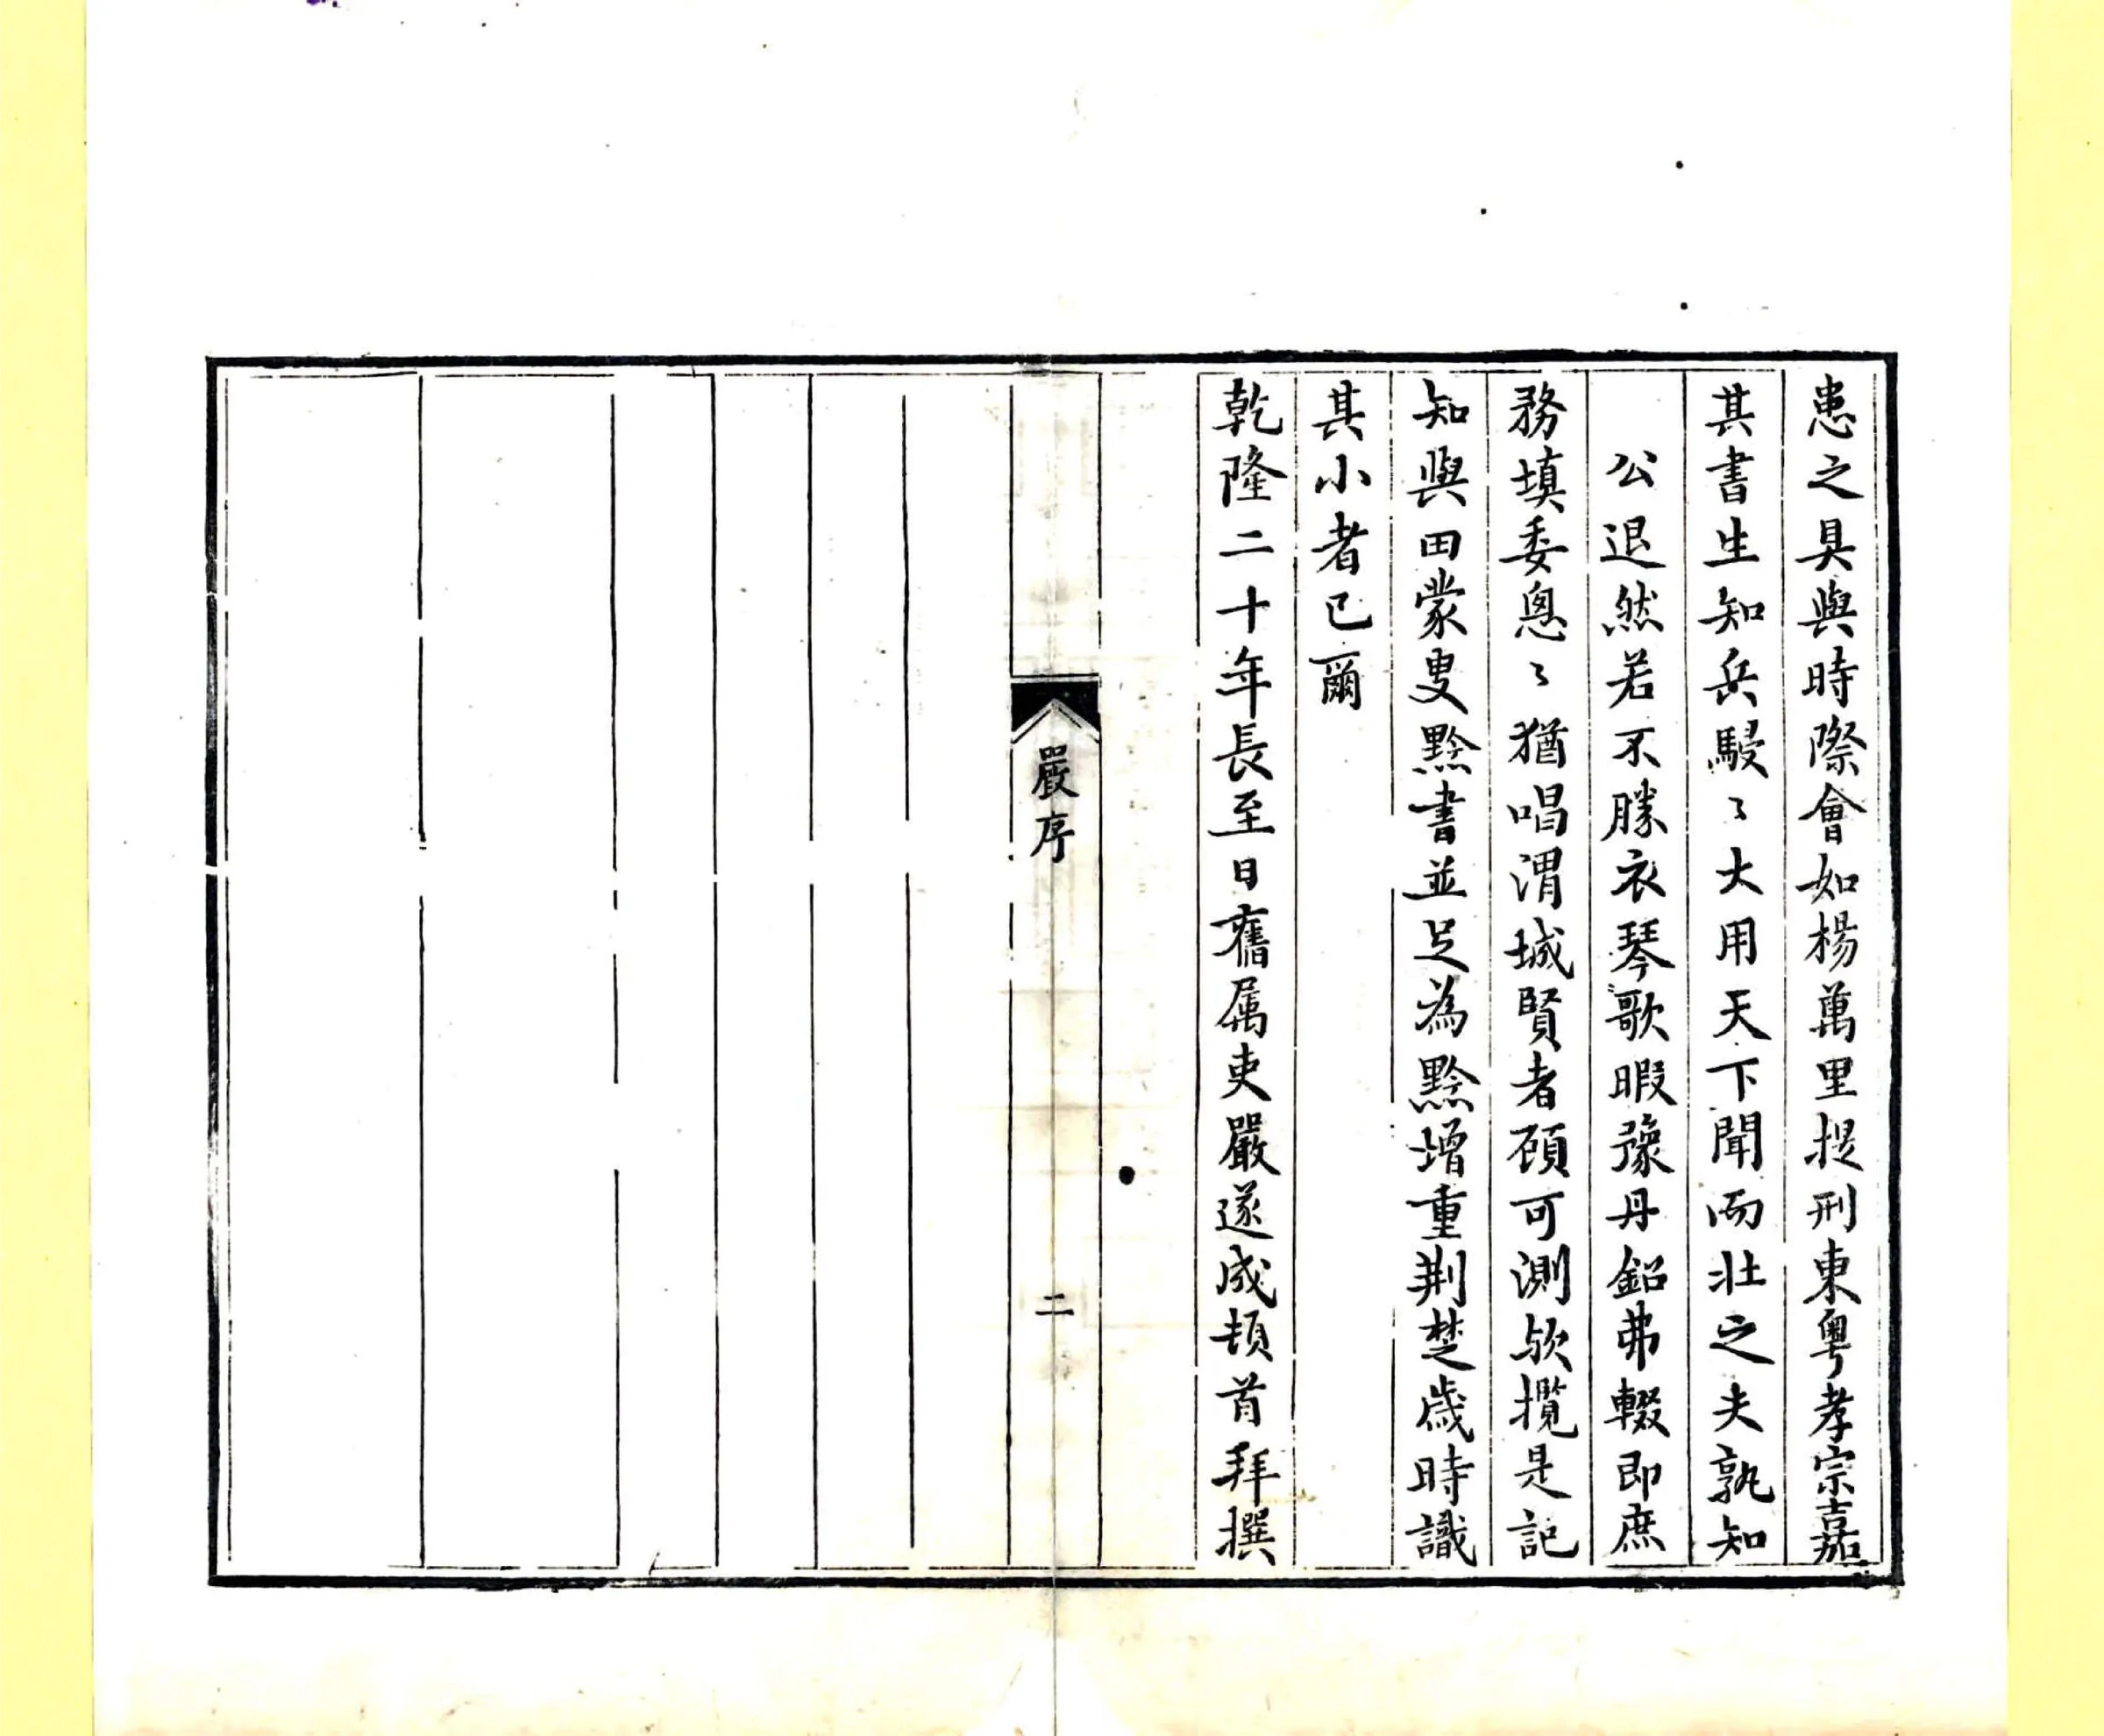 患之具與時際會如楊萬里提刑東粵孝宗嘉
其書生知兵駸〻大用天下聞而壯之夫孰知
公退然若不勝衣琴歌暇豫丹鉛弗輟即庶
務填委悤〻猶唱渭城賢者顧可測歟攬是記
知與田蒙叟黔書並足為黔增重荆楚歲時識
其小者已爾
乾隆二十年長至日舊属吏嚴遂成頓首拜撰
嚴序
二